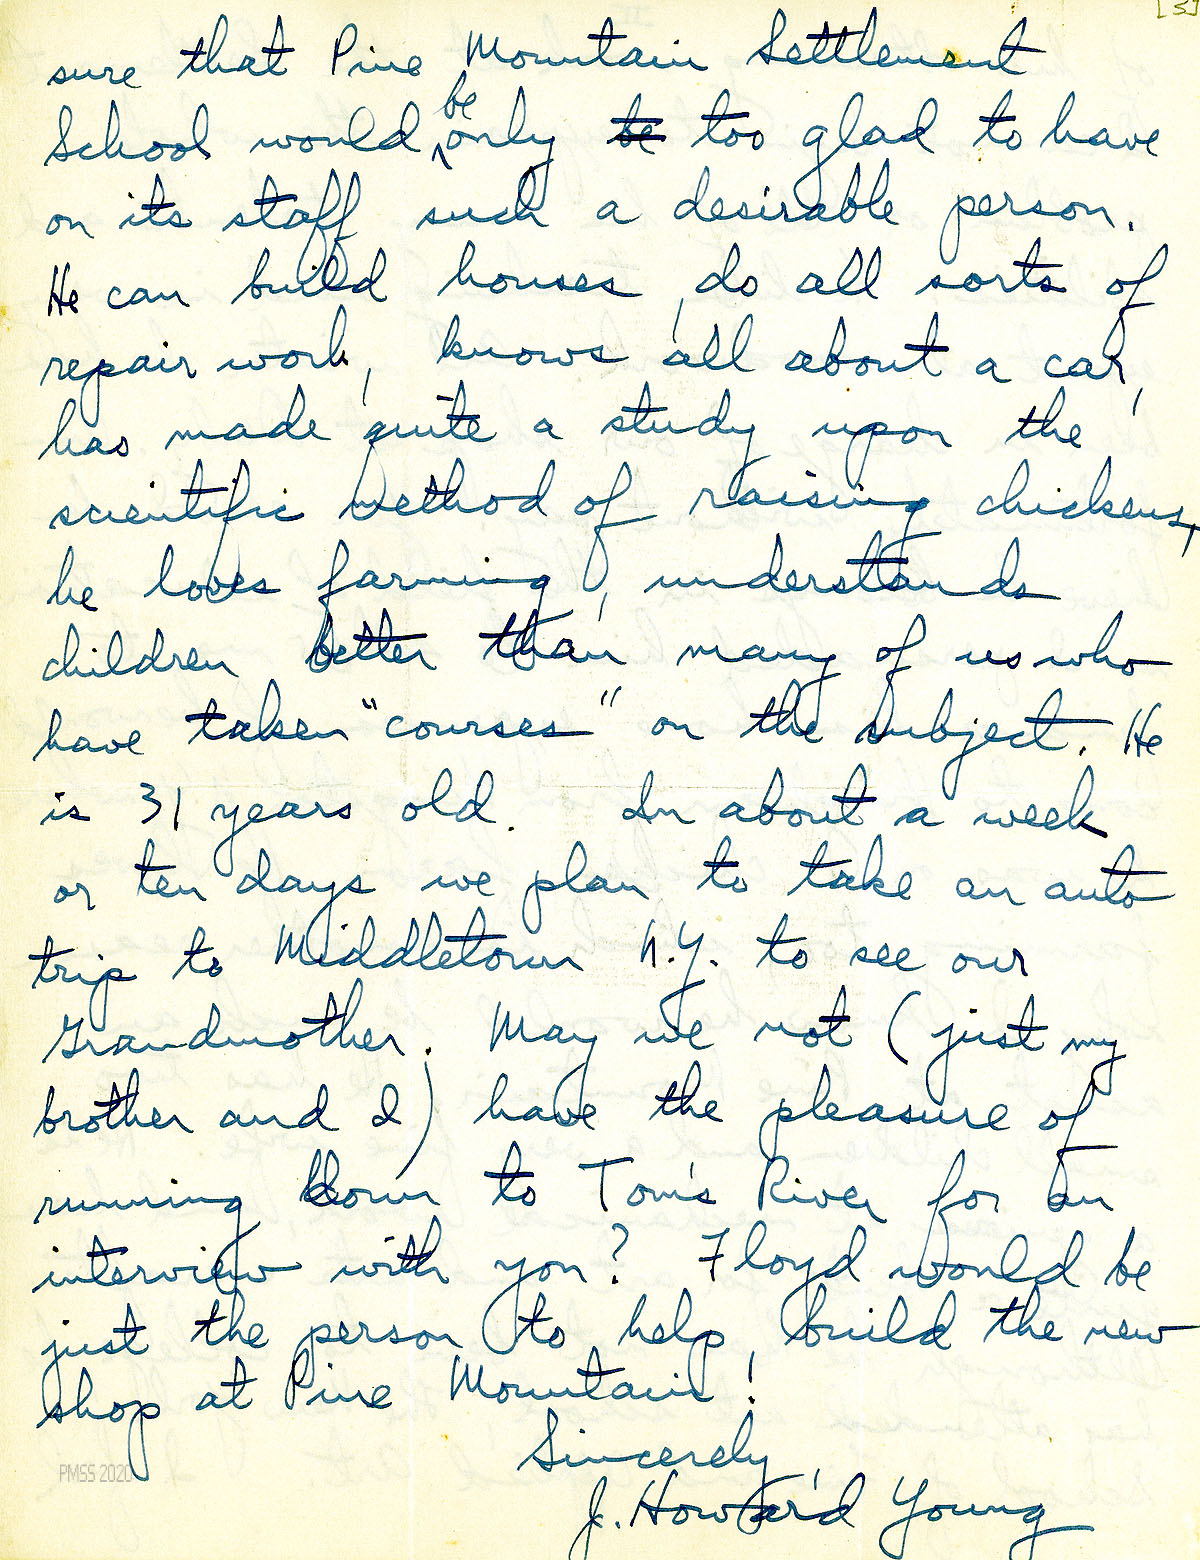 [5]
sure that Pine Mountain Settlement
School would be only be too glad to have
on its staff such a desirable person.
He can build houses, do all sorts of
repair work, knows all about a car,
has made quite a study upon the
scientific method of raising chickens,
he loves farming, understands
children better than many of us who
have taken "courses" on the subject. He
is 31 years old. In about a week
or ten days we plan to take an auto
trip to Middletown N.Y. to see our
Grandmother. May we not (just my
brother and I) have the pleasure of
running down to Tom's River for an
interview with you? Floyd would be
just the person to help build the new
shop at Pine Mountain!
Sincerely,
J. Howard Young
PMSS 2020